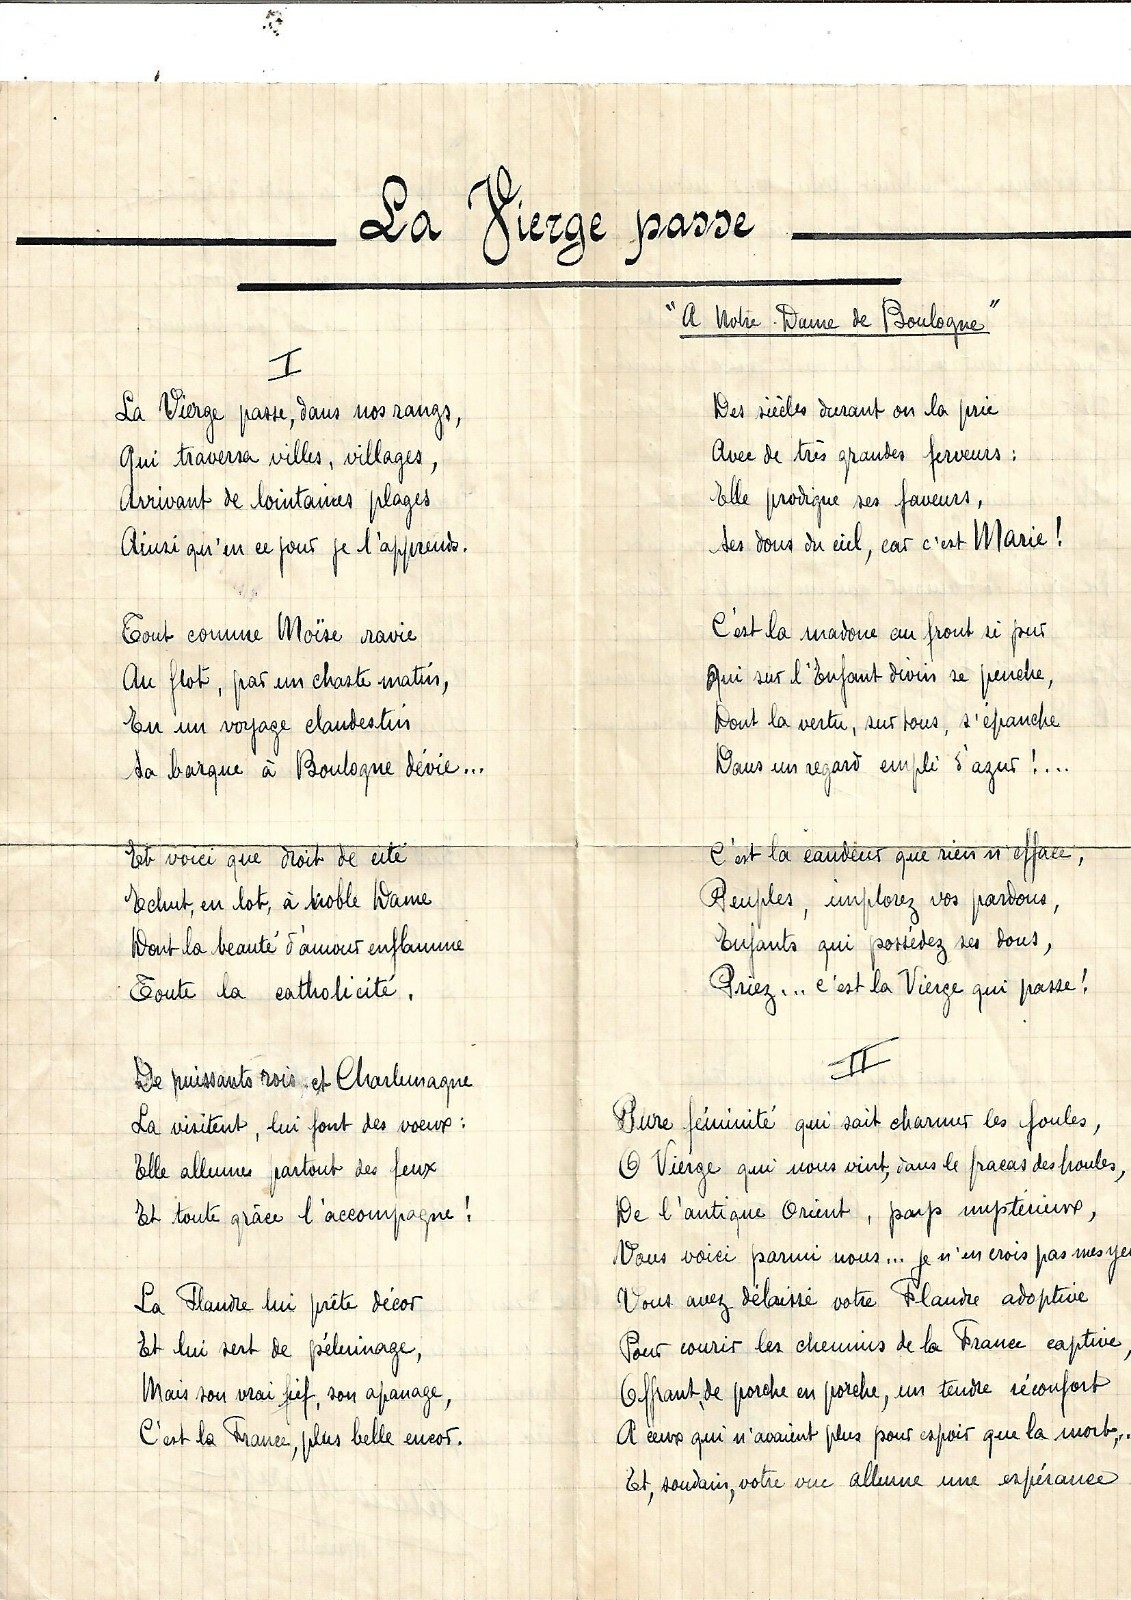 La Vierge passe
"A Notre-Dame de Boulogne"
I
La Vierge passe, dans nos rangs,
Qui traversa villes, villages,
Arrivant de lointaines plages
Ainsi qu'en ce jour je l'apprends.
Tout comme Moïse ravie
Au flot, par un chaste matin,
En un voyage clandestin
Sa barque à Boulogne dévie...
Et voici que droit de cité
Echut, en lot, à Noble Dame
Dont la beauté d'amour enflamme
Toute la catholicité.
De puissants rois et Charlemagne
La visitent, lui font des voeux :
Elle allume partout des feux
Et toute grâce l'accompagne !
La Flandre lui prête décor
Et lui sert de pélerinage,
Mais son vrai fief, son apanage,
C'est la France, plus belle encor.
Des siècles durant on la prie
Avec de très grandes ferveurs :
Elle prodigue ses faveurs,
Ses dons du ciel, car c'est Marie !
C'est la madone au front si pur
Qui sur l'Enfant divin se penche,
Dont la vertu, sur tous, s'épanche
Dans un regard empli d'azur !...
C'est la candeur que rien n'efface,
Peuples, implorez vos pardons,
Enfants qui possédez ses dons,
Priez... c'est la Vierge qui passe !
II
Pure féminité qui sait charmer les foules,
O Vierge qui nous vint, dans le fracas des houles,
De l'antique Orient, pays mystérieux,
Vous voici parmi nous... je n'en crois pas mes ye
Vous avez délaissé votre Flandre adoptive
Pour courir les chemins de la France captive,
Offrant, de porche en porche, un tendre réconfort
A ceux qui n'avaient plus pour espoir que la mort...
Et, soudain, votre vue allume une espérance